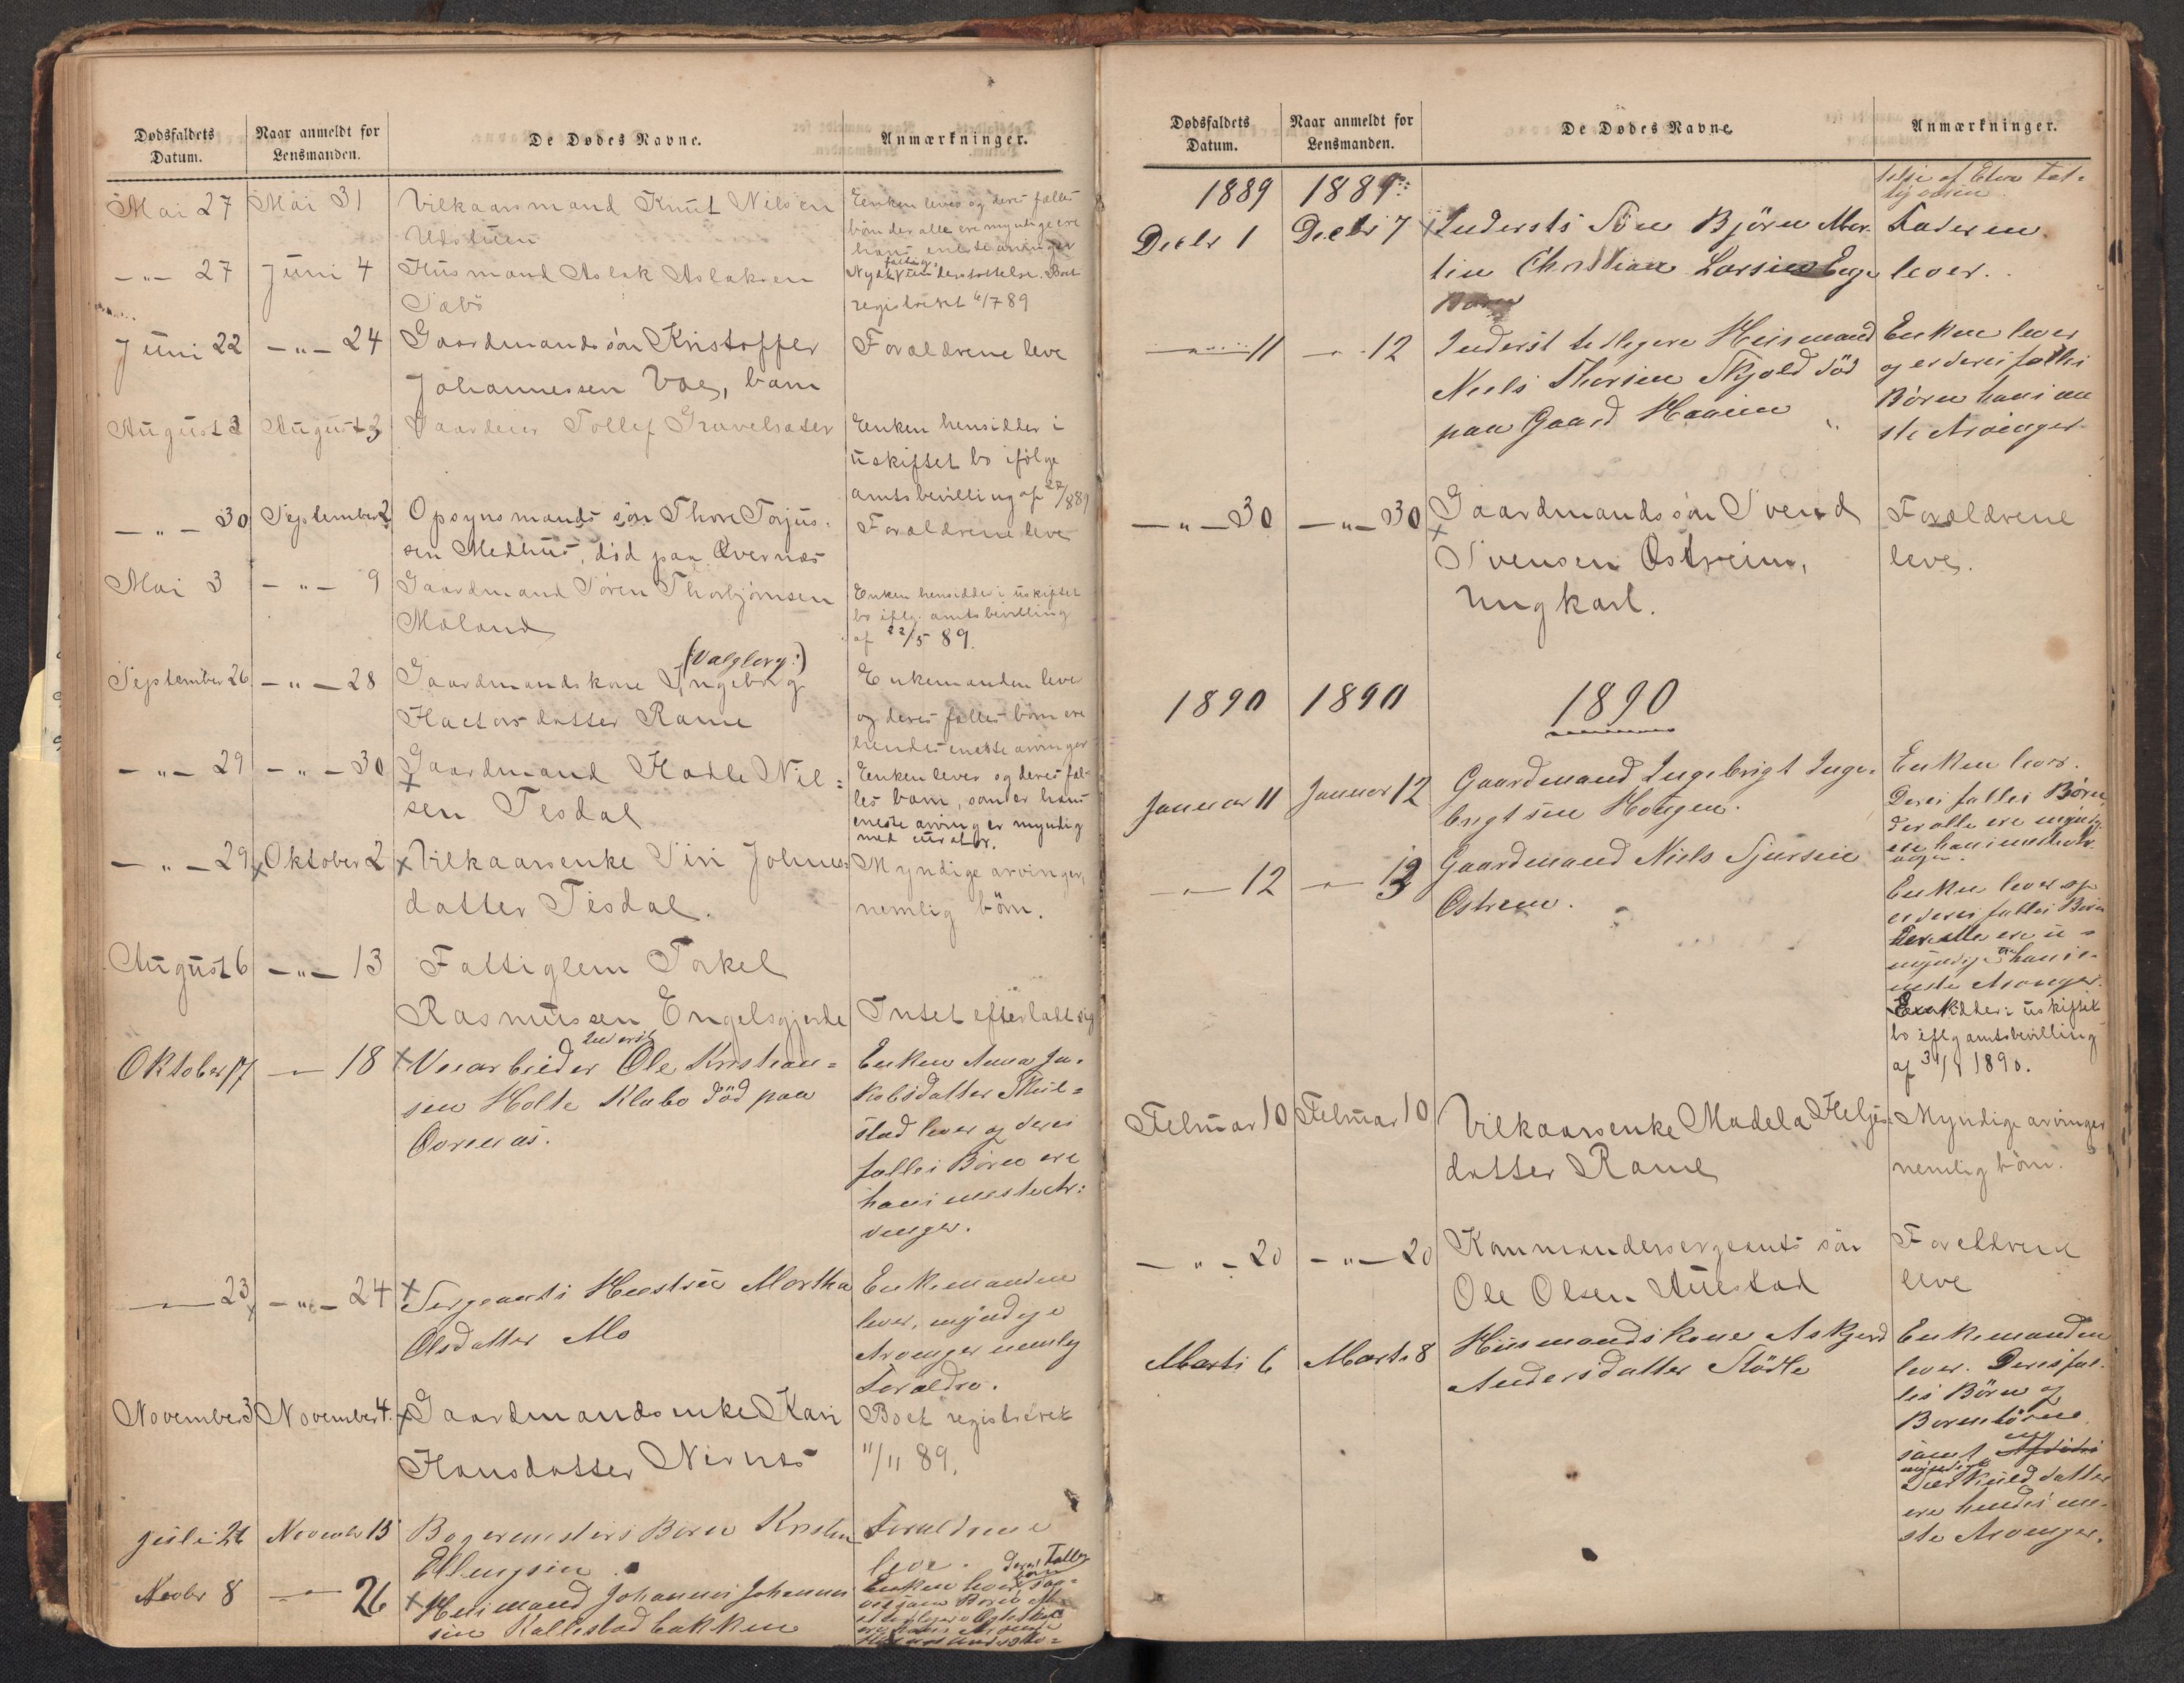 Dødsfaldets Datum. Naar anmeldt for Lensmanden. De Dødes Navne. Anmærkninger.
Mai 27 Mai 31 Vilkaarsmand Knut Nilsen
Enken lever og deres fælles
børn der alle ere myndige ere
hans eneste arvinger
-"- 27 Juni 4 Husmand Aslak Aslaksen
Sæbø
registreret 4/7 89
Juni 22 -"- 24 Gaardmandssøn Kristoffer
Johannessen Vae, barn
Forældrene leve
August 3 August 3 Gaardeier Tollef Gravelsæter
Enken hensidder i
uskiftet bo ifølge
amtsbevilling af 27/8 89
-"- 30 September 2 Opsynsmands søn Thore Torjus-
sen Medhus, død paa Øvernæs
Forældrene leve
Mai 3 -"- 9 Gaardmand Søren Thorbjørnsen
Maland
Enken hensidder i uskiftet
bo iflg. amtsbevilling
af 22/5 89.
September 26 -"- 28 Gaardmandskone Ingeborg
(Valgborg:)
Hactorsdatter Rame
Enkemanden lever
og deres fælles børn ere
hendes eneste arvinger
-"- 29 -"- 30 Gaardmand Hadle Nil=
sen Tesdal
Enken lever og deres fæl-
les barn, som er hans
eneste arving er myndig
med curator.
-"- 29 Oktober 2 Vilkaarsenke Siri Johnes-
datter Tesdal.
Myndige arvinger,
nemlig børn.
August 6 -"- 13 Fattiglem Torkel
Rasmussen Engelsgjerde
Intet efterladt sig
Oktober 17 -"- 18 Veiarbeider Ole Kristian=
sen Holte Klabo død paa
Øvernæs.
Enken Anna Ja-
kobsdatter
lever og deres
fælles Børn ere
hans eneste Ar-
vinger.
-"- 23 -"- 24 Sergeants Hustru Martha
Olsdatter Mo
Enkemanden
lever, myndige
Arvinger nemlig
Forældre.
November 3 November 4. Gaardmandsenke Kari
Hansdatter
Boet registreret
11/11 89.
Juli 26 November 15 Bagermesters Barn Kristen
Ellingsen
Forældrene
leve.
Novbr 8 -"- 26 Husmand Johannes Johannes
sen Kallestadbakken
deres Fælles
Enken lever,
Dødsfaldets Datum. Naar anmeldt for Lensmanden. De Dødes Navne. Anmærkninger.
1889 1889
Decbr 1 Decbr 7 Indersts Søn Bjørn Mar-
tin Christian Larsen
Barn
Faderen
lever.
-"- 11 -"- 12 Inderst tidligere Husmand
Niels Thorsen Skjold død
paa Gaard
Enken lever
og er deres fælles
Børn hans ene
ste Arvinger
-"- 30 -"- 30 Gaardmandssøn Svend
Svensen Østreim,
Ungkarl.
Forældrene
leve.
1890 1890 1890
Januar 11 Januar 12 Gaardmand Ingebrigt Inge-
brigtsen Haugen.
Enken lever.
Deres fælles Børn
der alle ere myndige
ere hans eneste Ar-
vinger.
-"- 12 -"- 13 Gaardmand Niels Sjursen
Østrem.
Enken lever og
er deres fælles Børn
der alle ere u-
myndige ere hans e-
neste Arvinger.
i uskiftet
bo iflg amtsbevilling
af 31/1 1890.
Februar 10 Februar 10 Vilkaarsenke Madela Heljes-
datter Rame
Myndige arvinger
nemlig børn.
-"- 20 -"- 20 Kommandersergeants søn
Ole Olsen Aulestad
Foreldrene
leve
Marts 6 Marts 8 Husmandskone Askjerd
Andersdatter Stødle
Enkemanden
lever. Deres fæl-
les Børn og
Børnebørn
samt
myndige
datter
ere hendes ene-
ste Arvinger.